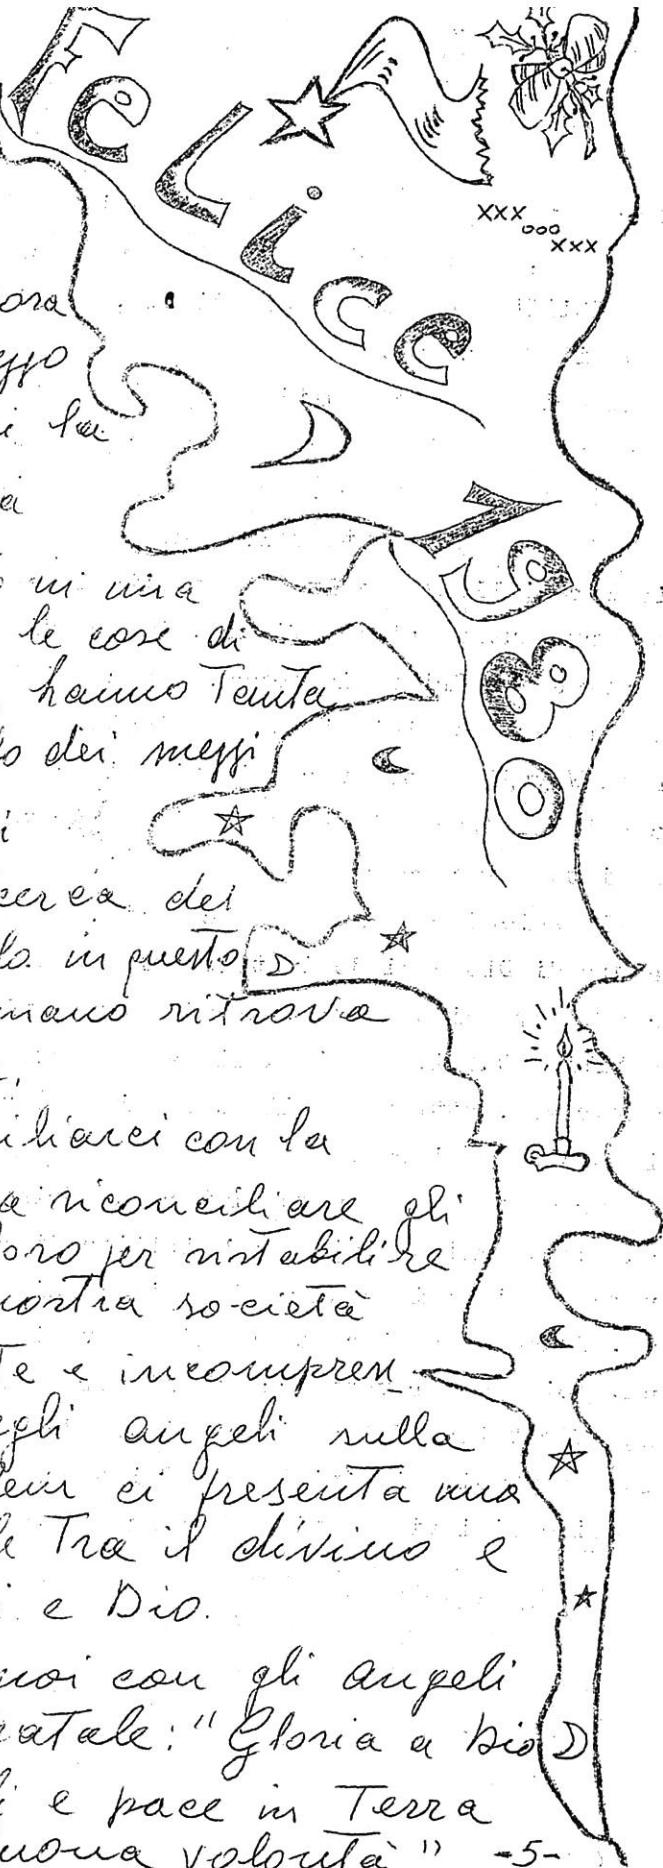 Felice
xxx
ooo
xxx
1980
ora
i la
a
in una
le cose di
hanno Tanta
o dei mezzi
i
cerca del
lo in questo
mano ritrova
iliarci con la
a riconciliare gli
loro per ristabilire
nostra so-cietà
Te e incompren_
egli angeli sulla
lem ci presenta una
le Tra il divino e
i e Dio.
noi con gli angeli
natale: "Gloria a Dio
i e pace in Terra
uona volontà"
-5-